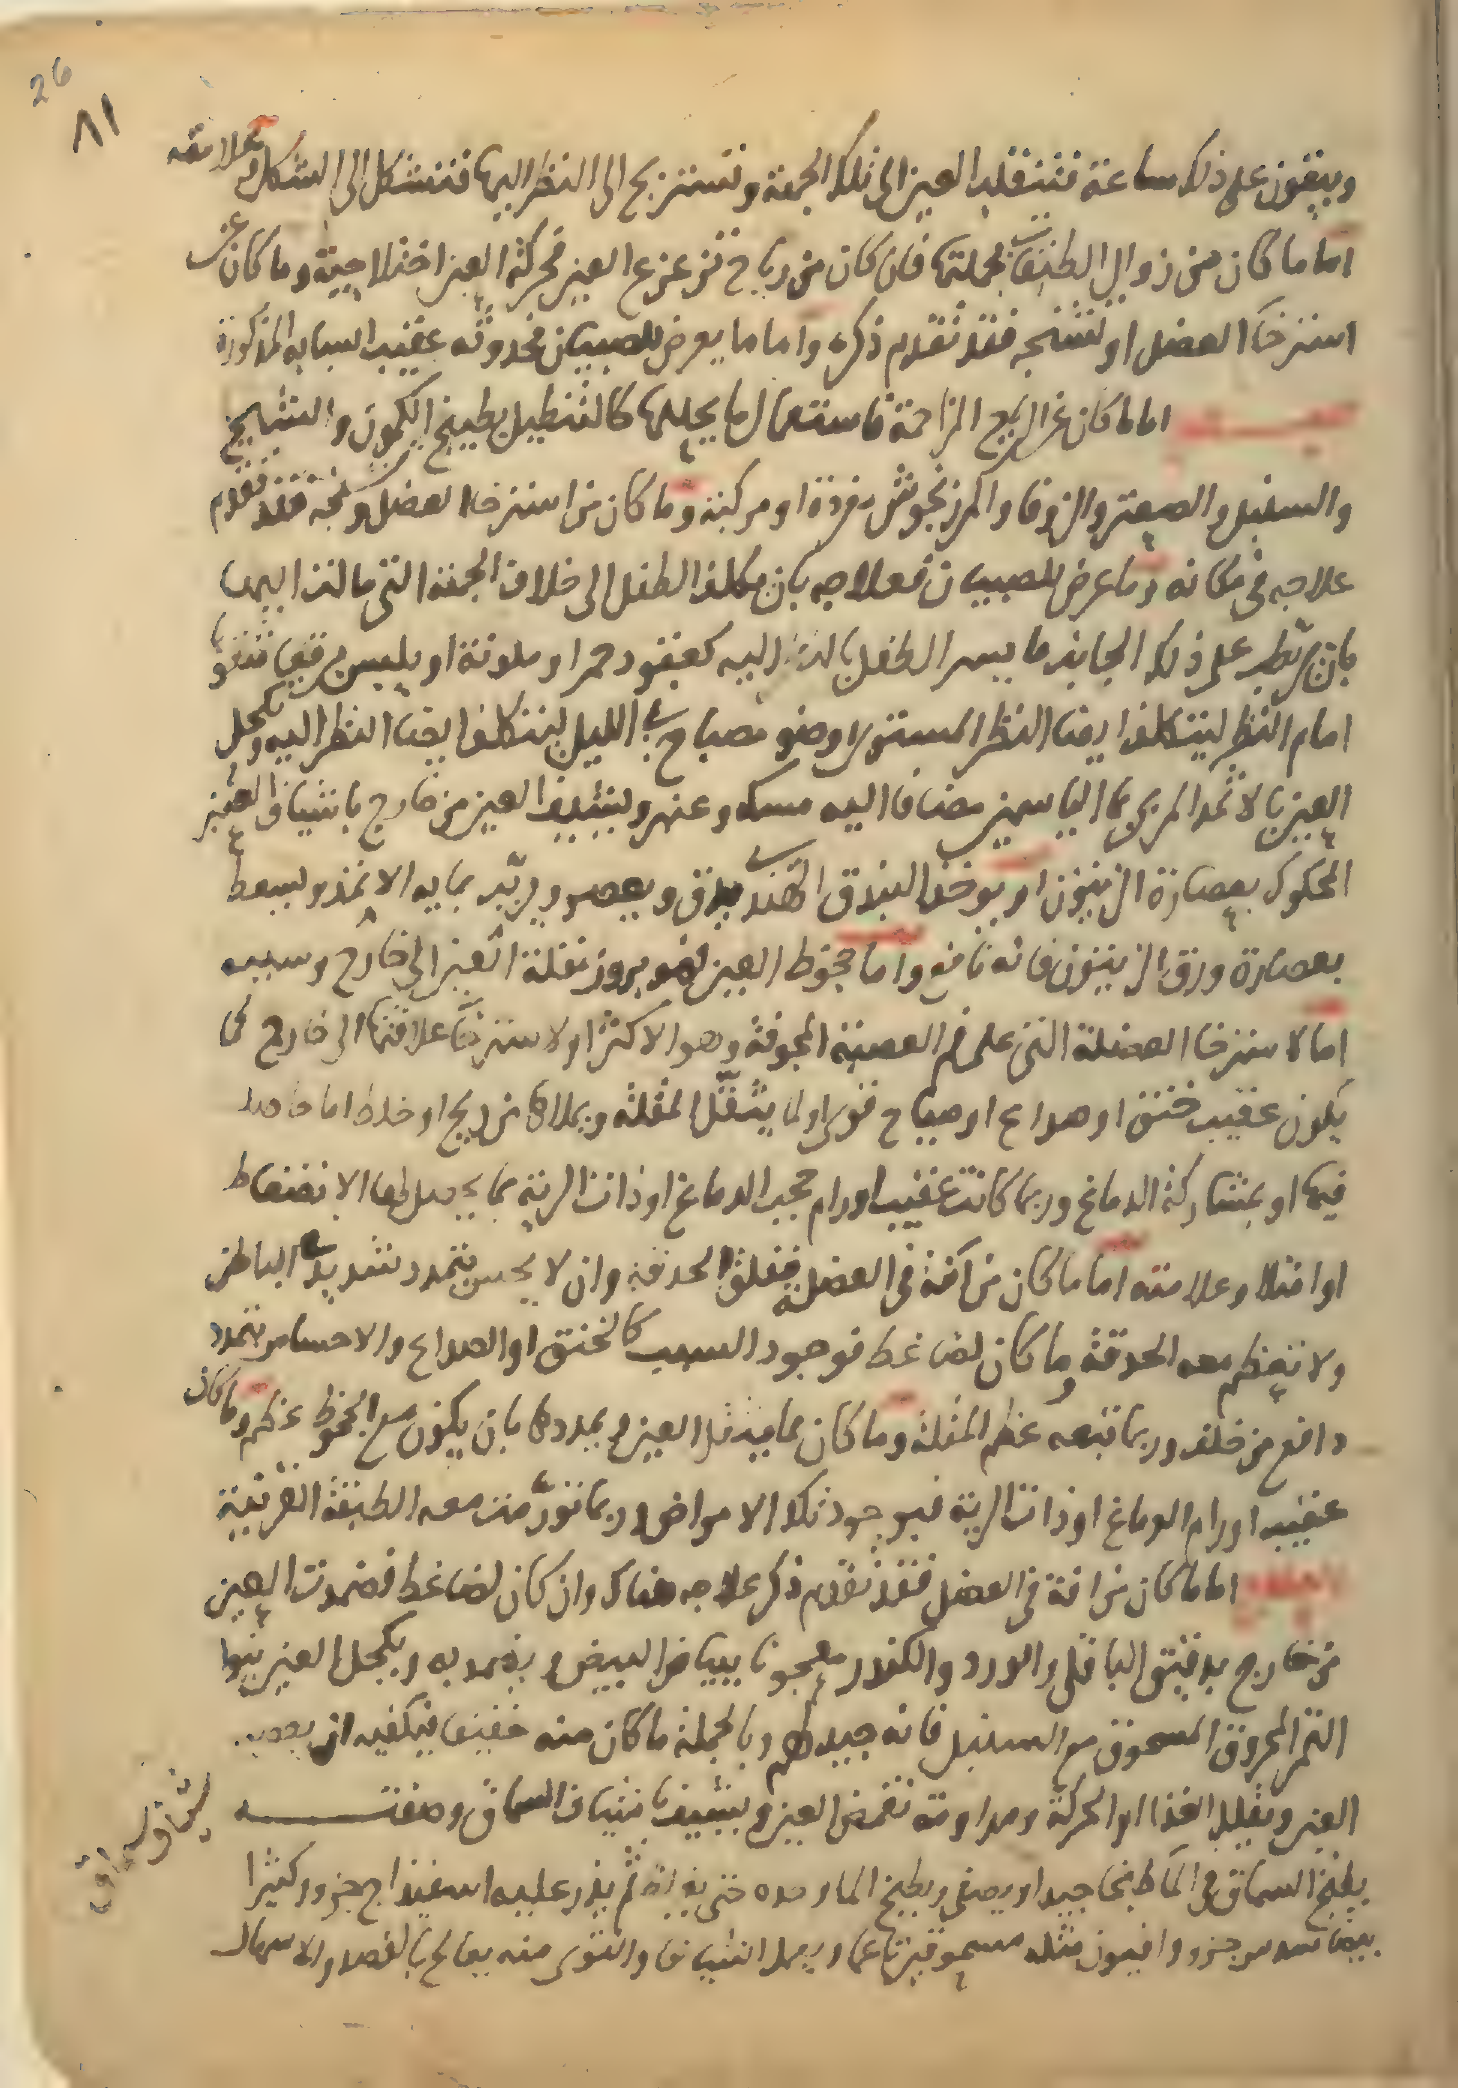 26
٨١
ويبقون على ذلك ساعة فتنقلب العين الى تلك الجهة وتستريح الى النظر اليها فتتشكل الى الشكل وعلامته
اما ما كان من زوال الطبقات بجملتها فان كان من رياح تزعزع العين فحركة العين اختلاجية وما كان عن
استرخا العضل او تشنجه فقد تقدم ذكره واما ما يعرض للصبيان فحدوثه عقيب اسبابه المذكورة
اما ما كان عن الريح المزاحمة فاستعمال ما يحللها كالتنطيل بطبيخ الكمون والشيح
والسنبل والصعتر والزوفا والمرزنجوش مفردة او مركبة وما كان من استرخا العضل وتشنجه فقد تقدم
علاجه في مكانه وما عرض للصبيان فعلاجه بان يكلف الطفل الى خلاف الجهة التي مالت اليها
بان يربط على ذلك الجانب ما يسر الطفل بالنظر اليه كعقود حمر او ملونة او يلبس برقعا مثقوبا
امام النظر ليتكلف ايضا النظر المستوي او ضو مصباح في الليل ليتكلف ايضا النظر اليه وتكحل
العين بالاثمد المربى بما الياسمين مضافا اليه مسك وعنبر وتشيف العين من خارج باشياف العنبر
المحكوك بعصارة الزيتون او يوخذ البندق الهندي يدق ويعصر ويربب بمايه الاثمد ويسعط
بعصارة ورق الزيتون فانه نافع واما جحوظ العين فهو بروز مقلة العين الى خارج وسببه
اما لاسترخا العضلة التي على فم العصبة المجوفة وهو الاكثر او لاسترخا علاقتها الى خارج كما
يكون عقيب خنق او صداع او صياح قوي او لما يثقّل المقلة ويملاها من ريح او خلط اما خاصا
فيها او بمشاركة الدماغ وربما كانت عقيب اورام حجب الدماغ او ذات الرية بما يحصل لها الانضغاط
او امتلا وعلامته اما ما كان من آفة في العضلة فقلق الحدقة وان لا يحس بتمدد شديد في الباطن
ولا تعظم معه الحدقة وما كان لضاغط فوجود السبب كالخنق او الصداع والاحساس بتمدد
دافع من خلف وربما تبعه عظم المقلة وما كان مما يثقل العين ويمددها بان يكون مع الجحوظ عظم وما كان
عقيب اورام الدماغ او ذات الرية فبوجود تلك الامراض وربما تورّمت معه الطبقة القرنية
العلاج اما ما كان من آفة في العضل فقد تقدم ذكر علاجه هناك وان كان لضاغط فضمدت العين
من خارج بدقيق الباقلي والورد والكندر معجونا ببياض البيض ويضمد به ويكحل العين بنوا
التمر المحروق المسحوق مع السنبل فانه جيد لهم وبالجملة ما كان منه خفيفا فيكفيه ان يعصب
العين وتقليل الغذا او الحركة ومداومة تغمض العين وتشيف باشياف السماق وصفته
يطبخ السماق في الما طبخا جيدا ويصفى ويطبخ الما وحده حتى يغلظ ثم يذر عليه اسفيذاج جزو وكثيرا
بيضا سدس جزو وافيون مثله مسحوقين ناعما ويعمل اشيافا والقوي منه يعالج بالفصد والاسهال
شياف سماق